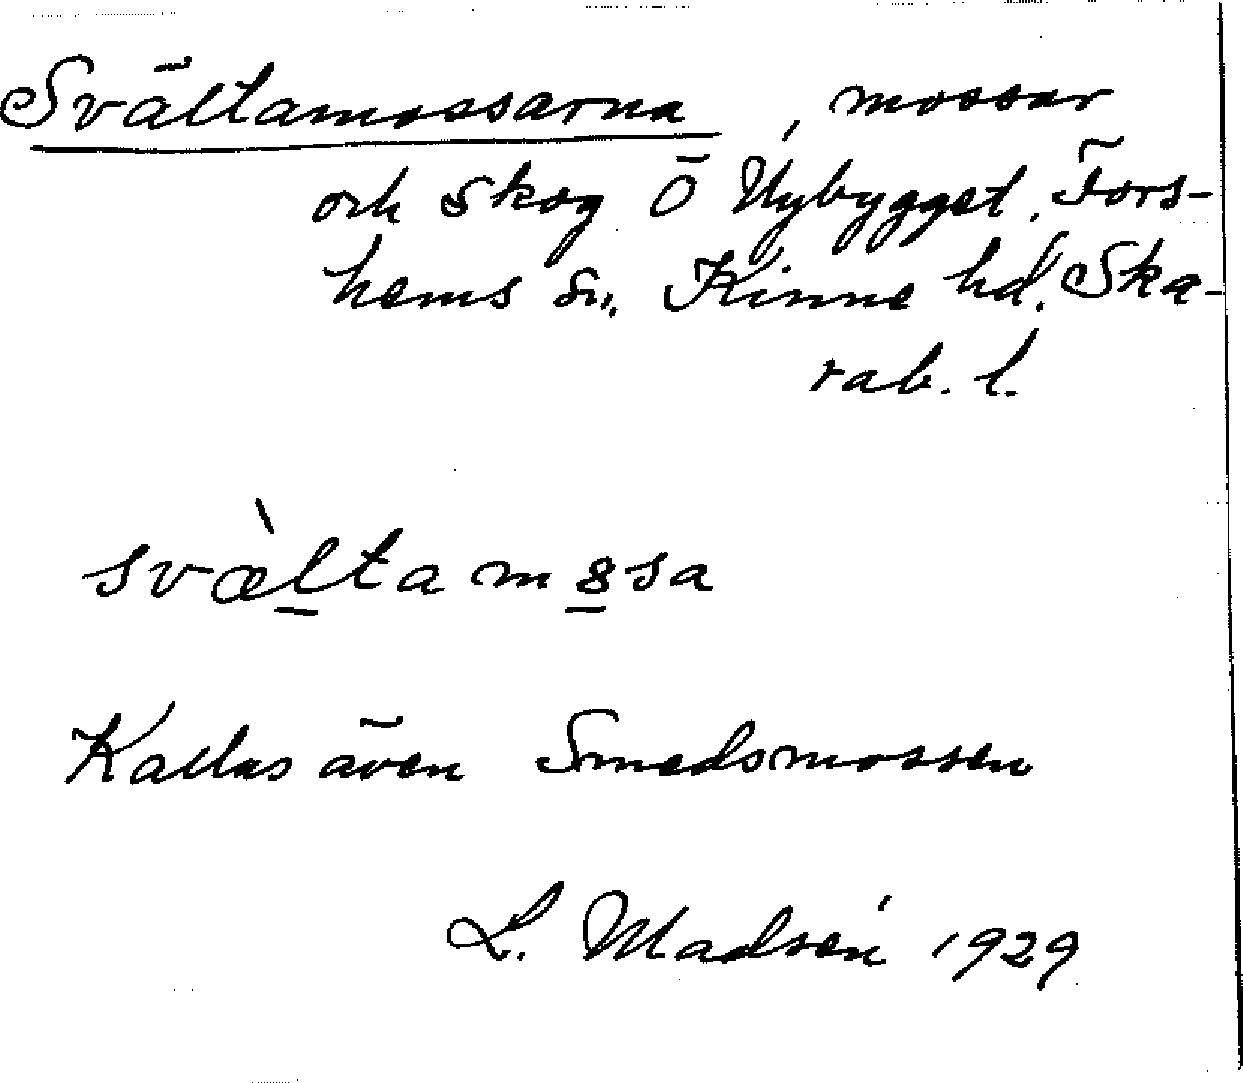 Svältamossarna, mossar
och skog Ö Nybygget, Fors-
hems sn, Kinne hd, Ska-
rab. l.
svæ̀lta m8sa
Kallas även Smedsmossen
L. Madsén 1929